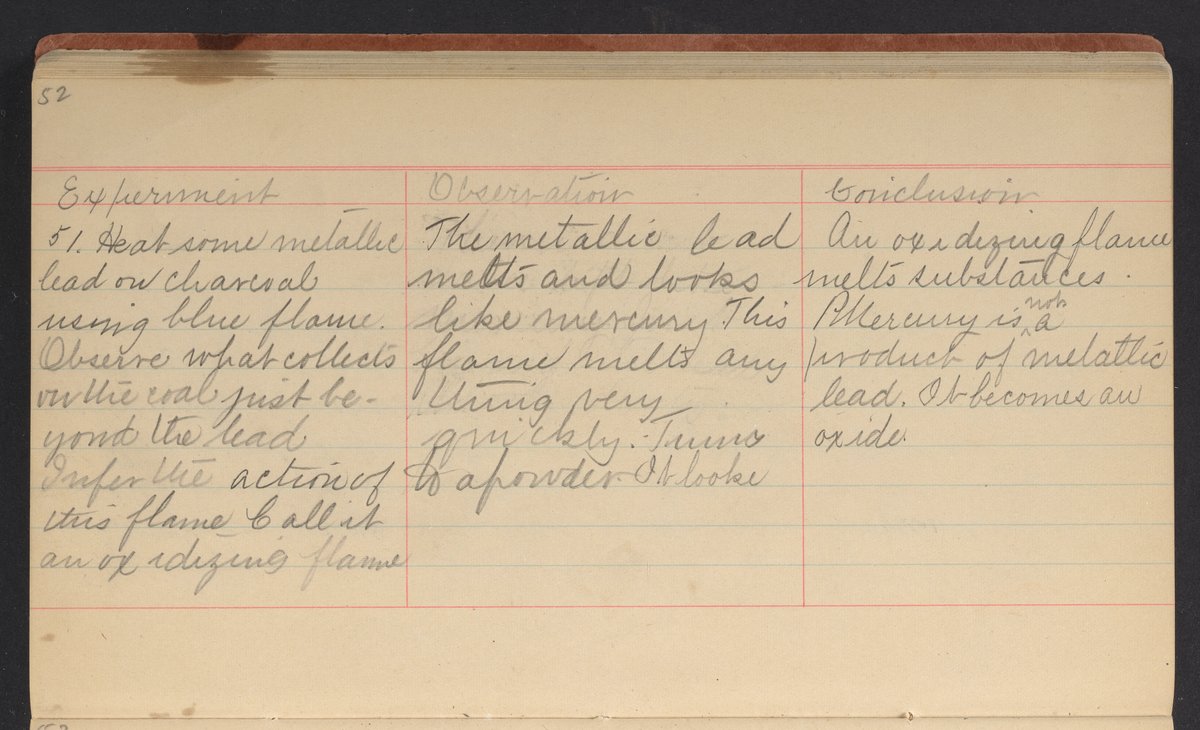 52
Experiment
51. Heat some metallic
lead on charcoal
using blue flame.
Observe what collects
on the coal just be-
yond the lead
Infer the action of
this flame Call it
an oxidizing flame
Observation
The metallic lead
melts and looks
like mercury This
flame melts any
thing very
quickly. Turns
to a powder. It looke
Conclusion
An oxidizing flame
melts substances.
Mercury is not a
product of metallic
lead. It becomes an
oxide.